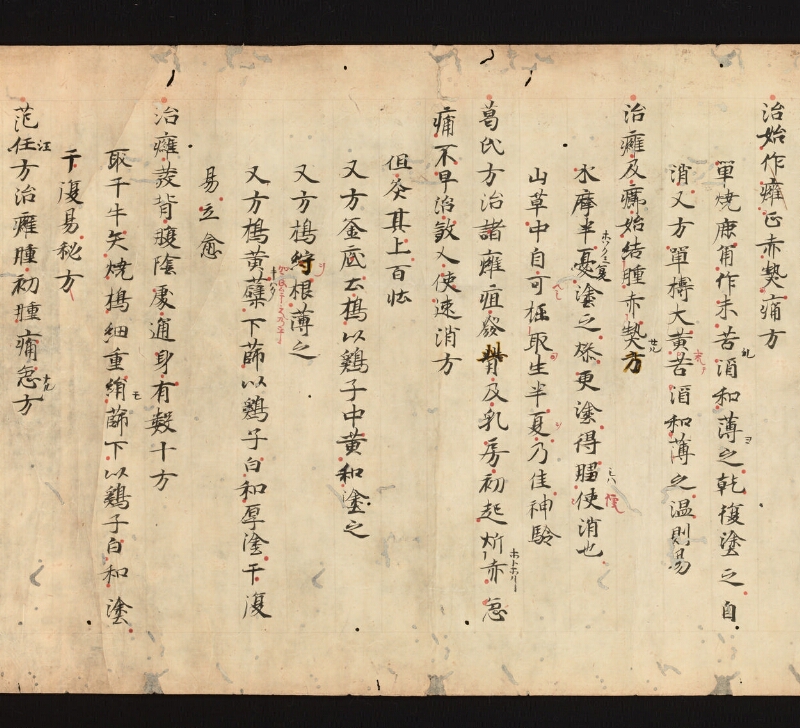 治始作癰正赤熱痛方
單燒鹿角作末苦酒和薄之乾復塗之自
消又方單檮大黃苦酒和薄之温則易
治癰及癤始結腫赤熱方
水摩半夏塗之燥更塗得腽使消也
山草中自可掘取生半夏乃佳神驗
葛氏方治諸癰疽發背及乳房初起炘赤急
痛不早治敦人使速消方
但灸其上百壮
又方釜底土檮以鷄子中黃和塗之
又方檮 根薄之
又方檮黃蘗下篩以鷄子白和厚塗干復
易立愈
治癰發背腹陰處通身有數十方
取干牛矢燒檮細重絹篩下以鷄子白和塗
干復易秘方
范汪方治癰腫初腫痛急方